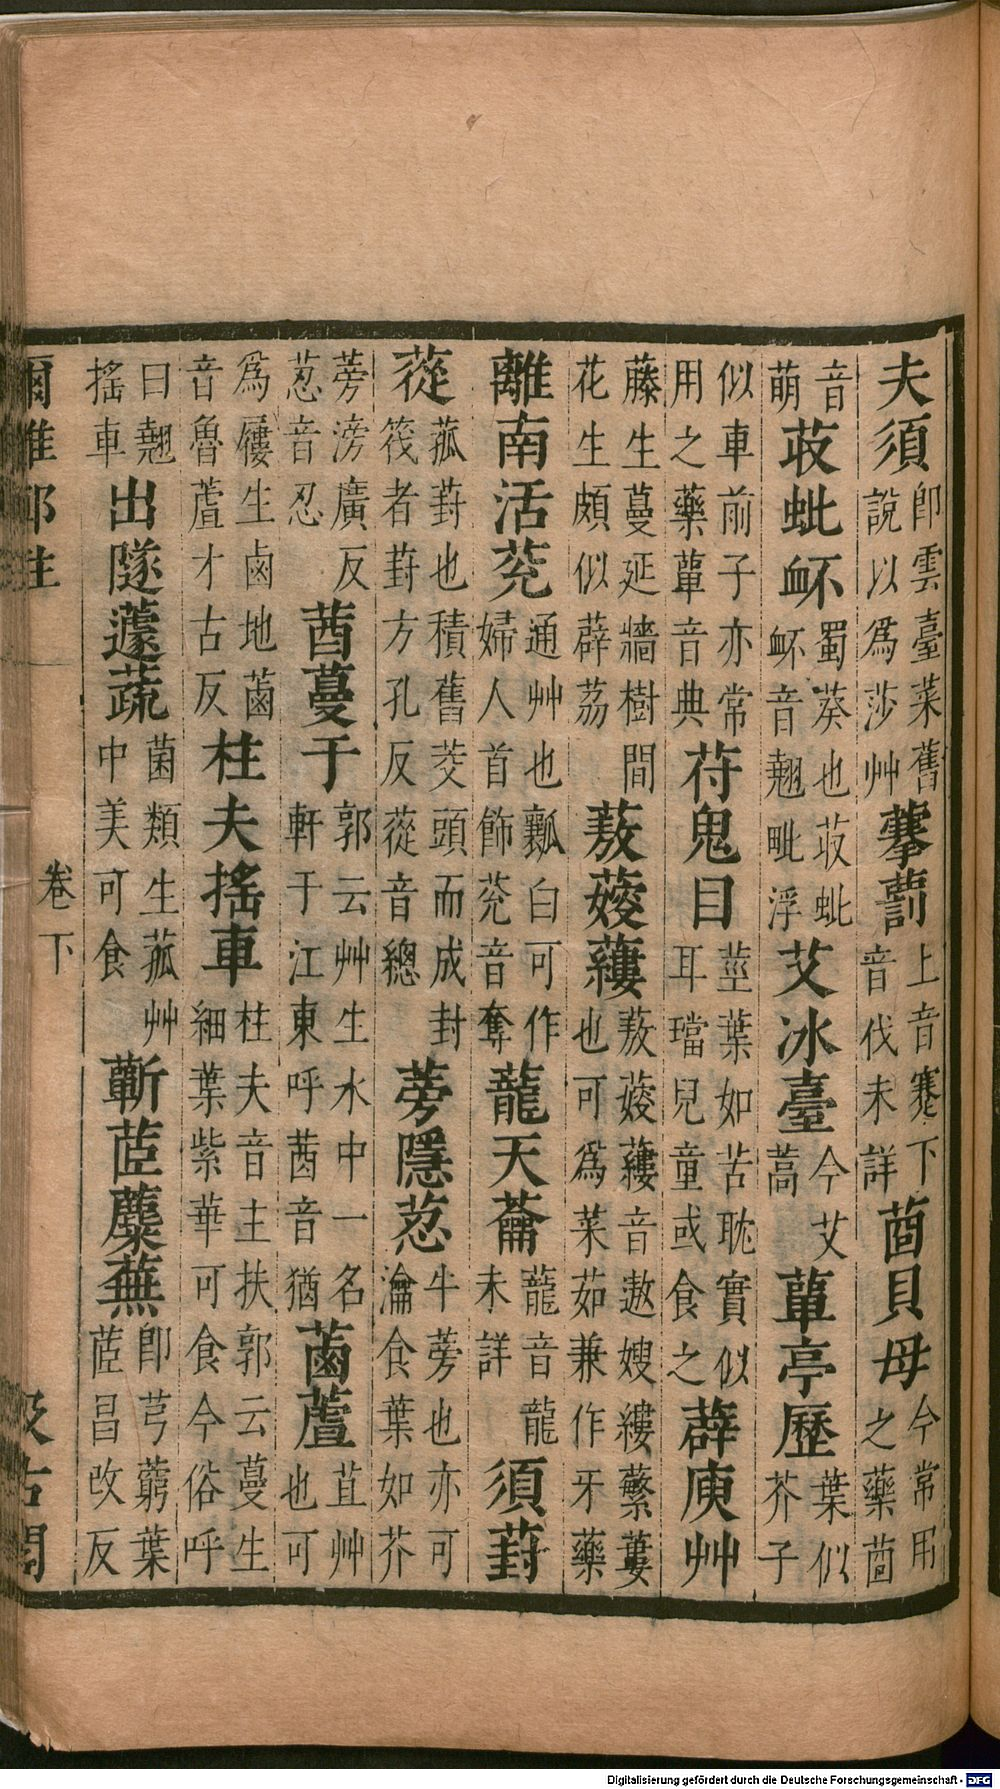 夫須卽雲臺菜舊說以爲莎艸藆藅上音蹇下音伐未詳莔貝母今常用之藥莔
音萌荍蚍衃蜀葵也荍蚍衃音翹毗浮艾冰臺今艾蒿蕇亭歷葉似芥子
似車前子亦常用之藥蕇音典苻鬼目莖葉如苦耽實似耳璫兒童或食之薜庾艸
藤生蔓延牆樹間花生頗似薜荔蔜䕅䕘蔜䕅䕘音遨嫂縷蘩蔞也可爲菜茹兼作牙藥
離南活莌通艸也瓤白可作婦人首飾莌音奪蘢天蘥蘢音龍未詳須葑
蓯菰葑也積舊茭頭而成封筏者葑方孔反蓯音總蒡隱荵牛蒡也亦可瀹食葉如芥
蒡滂廣反荵音忍莤蔓于郭云艸生水中一名軒于江東呼莤音猶蓾蘆苴艸也可
爲屨生鹵地蓾音魯蘆才古反柱夫搖車柱夫音主扶郭云蔓生細葉紫華可食今俗呼
曰翹搖車出隧蘧蔬菌類生菰艸中美可食蘄茝蘪蕪卽芎藭葉茝昌改反
爾雅鄭注 卷下 汲古閣
Digitalisierung gefördert durch die Deutsche Forschungsgemeinschaft - DFG